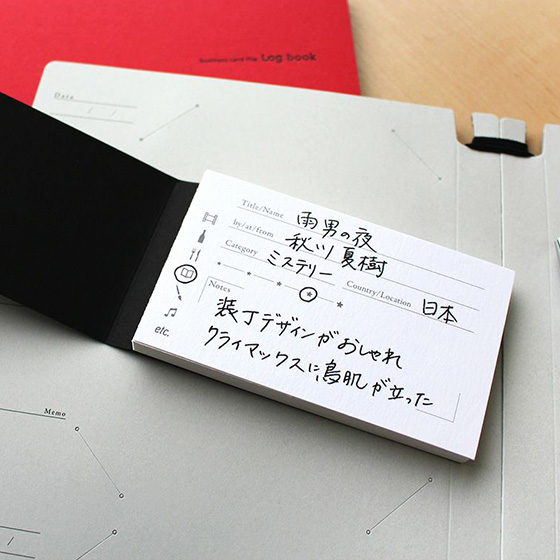 Business card file Log book
Date
Title/Name 雨男の夜
by/at/from 秋ツ夏樹
Category ミステリー
Country/Location 日本
Notes
装丁デザインがおしゃれ
クライマックスに鳥肌が立った
etc.
Memo